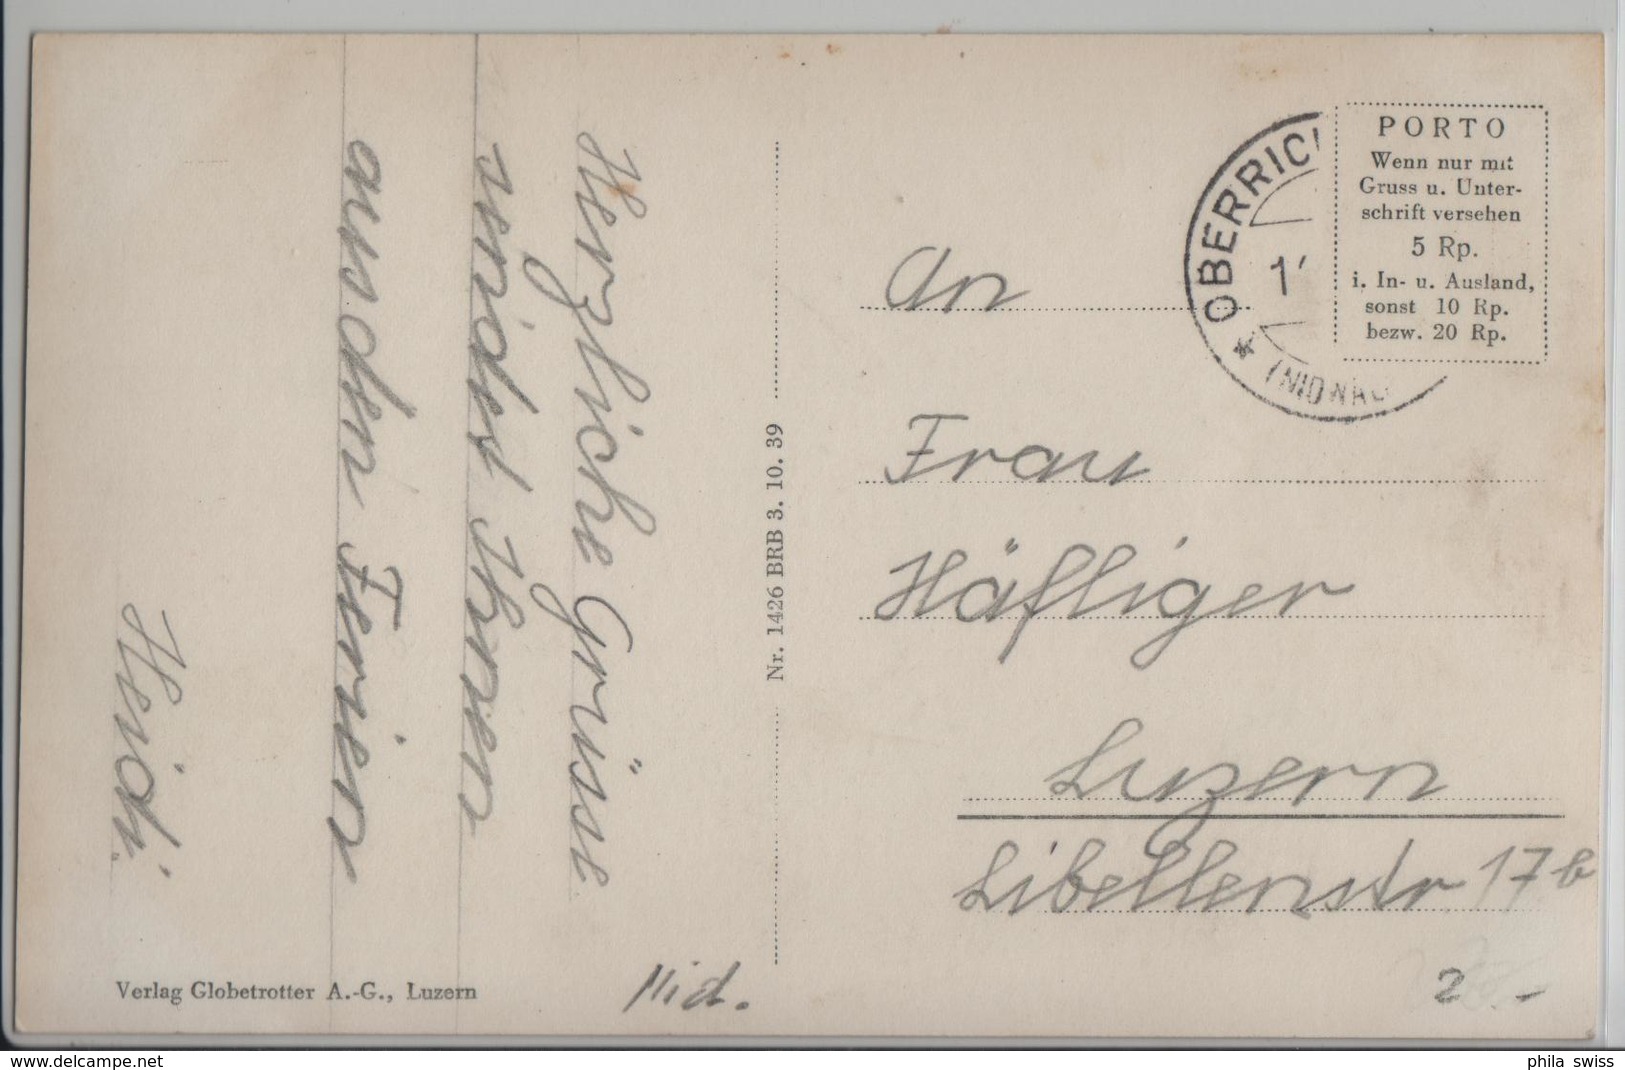 Herzliche Grüsse
sendet Ihnen
aus den Ferien
Heidi
Verlag Globetrotter A.-G., Luzern
Nid.
Nr. 1426 BRB 3. 10. 39
* OBERRIC
(NIDWAL
PORTO
Wenn nur mit
Gruss u. Unter-
schrift versehen
5 Rp.
i. In- u. Ausland,
sonst 10 Rp.
bezw. 20 Rp.
An
Frau
Häfliger
Luzern
Libellenstr 17b
2.-
www.delcampe.net
phila_swiss